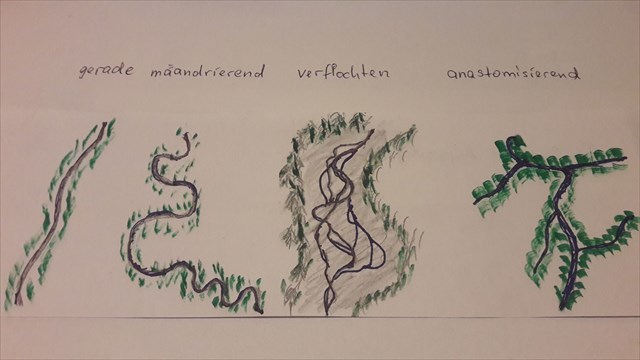 gerade mäandrierend verflochten anastomisierend